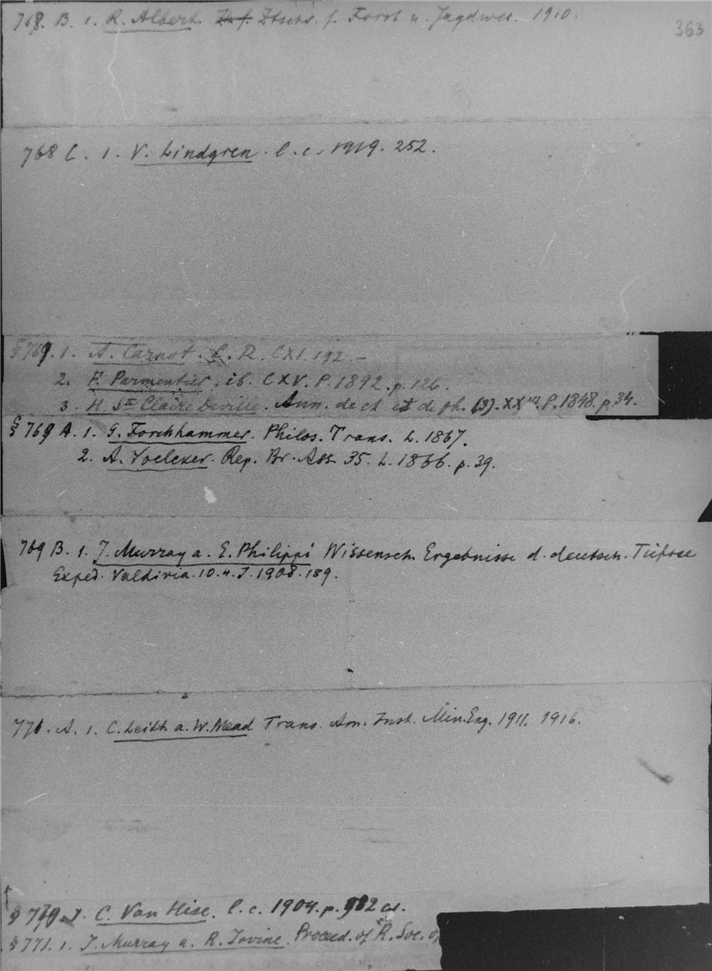 768. B. 1. R. Albert. Ztschr. f. Forst u. Jagdwes. 1910.
363
768 C. 1. V. Lindgren. l. c. 1919. 252.
§ 769. 1. A. Carnot. C. R. CXI. 192.—
2. F. Parmentier. ib. CXV. P. 1892. p. 126.
3. H. Ste Claire Deville. Ann. de ch. et de ph. (3). XXIII. P. 1848. p. 34.
§ 769 A. 1. G. Forchhammer. Philos. Trans. L. 1867.
2. A. Voelcker. Rep. Br. Ass. 35. L. 1866. p. 39.
769 B. 1. J. Murray a. E. Philippi Wissensch. Ergebnisse d. deutsch. Tiefsee
Exped. Valdivia. 10. 4. J. 1908. 189.
770. A. 1. C. Leith a. W. Mead Trans. Am. Inst. Min. Eng. 1911. 1916.
C. Van Hise. l. c. 1904. p. 982
§ 771. 1. J. Murray a. R. Irvine. Proceed. of R. Soc. of